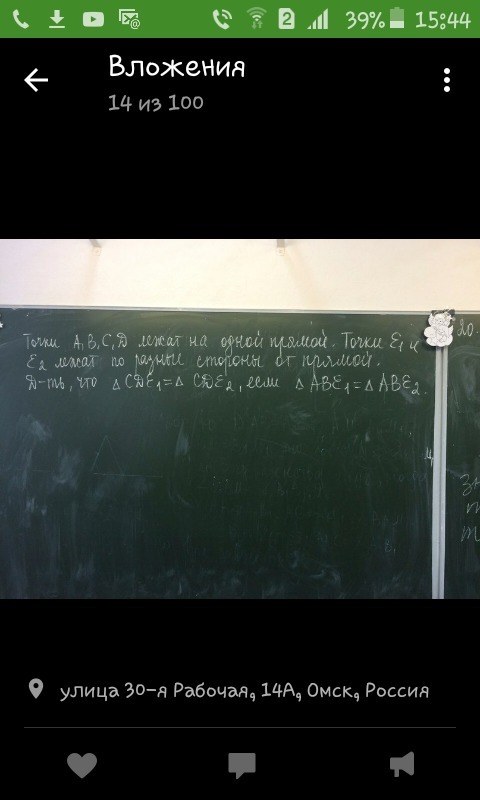 39% 15:44
2
Вложения
14 из 100
Точки A, B, C, D лежат на одной прямой. Точки E₁ и
E₂ лежат по разные стороны от прямой.
Д-ть, что △ CDE₁ = △ CDE₂, если △ ABE₁ = △ ABE₂.
20.
улица 30-я Рабочая, 14А, Омск, Россия